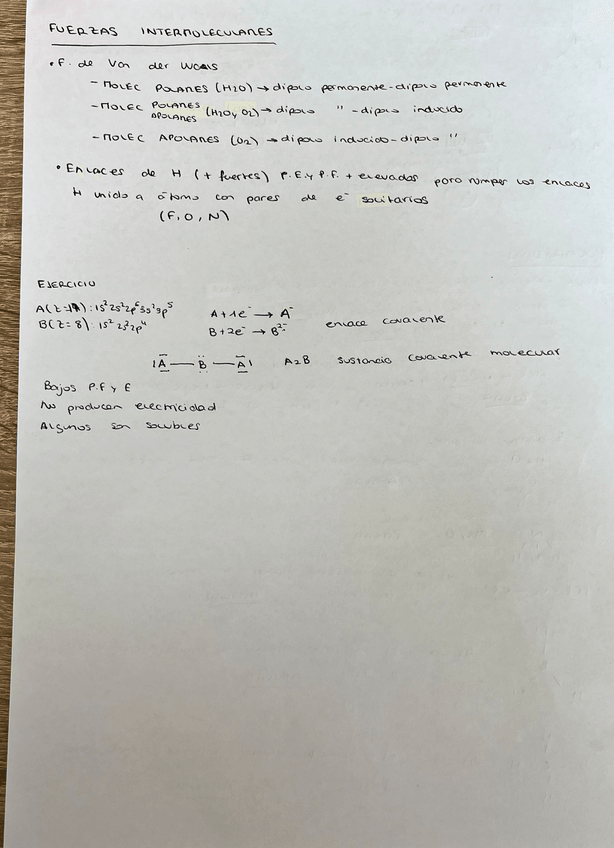 FUERZAS INTERMOLECULARES
• F. de Van der Waals
- MOLEC POLARES (H2O) → dipolo permanente-dipolo permanente
- MOLEC POLARES APOLARES (H2O y O2) → dipolo " - dipolo inducido
- MOLEC APOLARES (O2) → dipolo inducido - dipolo "
• Enlaces de H (+ fuertes) P.E y P.F. + elevados para romper los enlaces
H unido a átomo con pares de e⁻ solitarios
(F, O, N)
EJERCICIO
A(Z=17): 1s² 2s² 2p⁶ 3s² 3p⁵ A + 1e⁻ → A⁻
B(Z=8): 1s² 2s² 2p⁴ B + 2e⁻ → B²⁻ enlace covalente
|A — B — A| A2B sustancia covalente molecular
Bajos P.F y E
No producen electricidad
Algunos son solubles